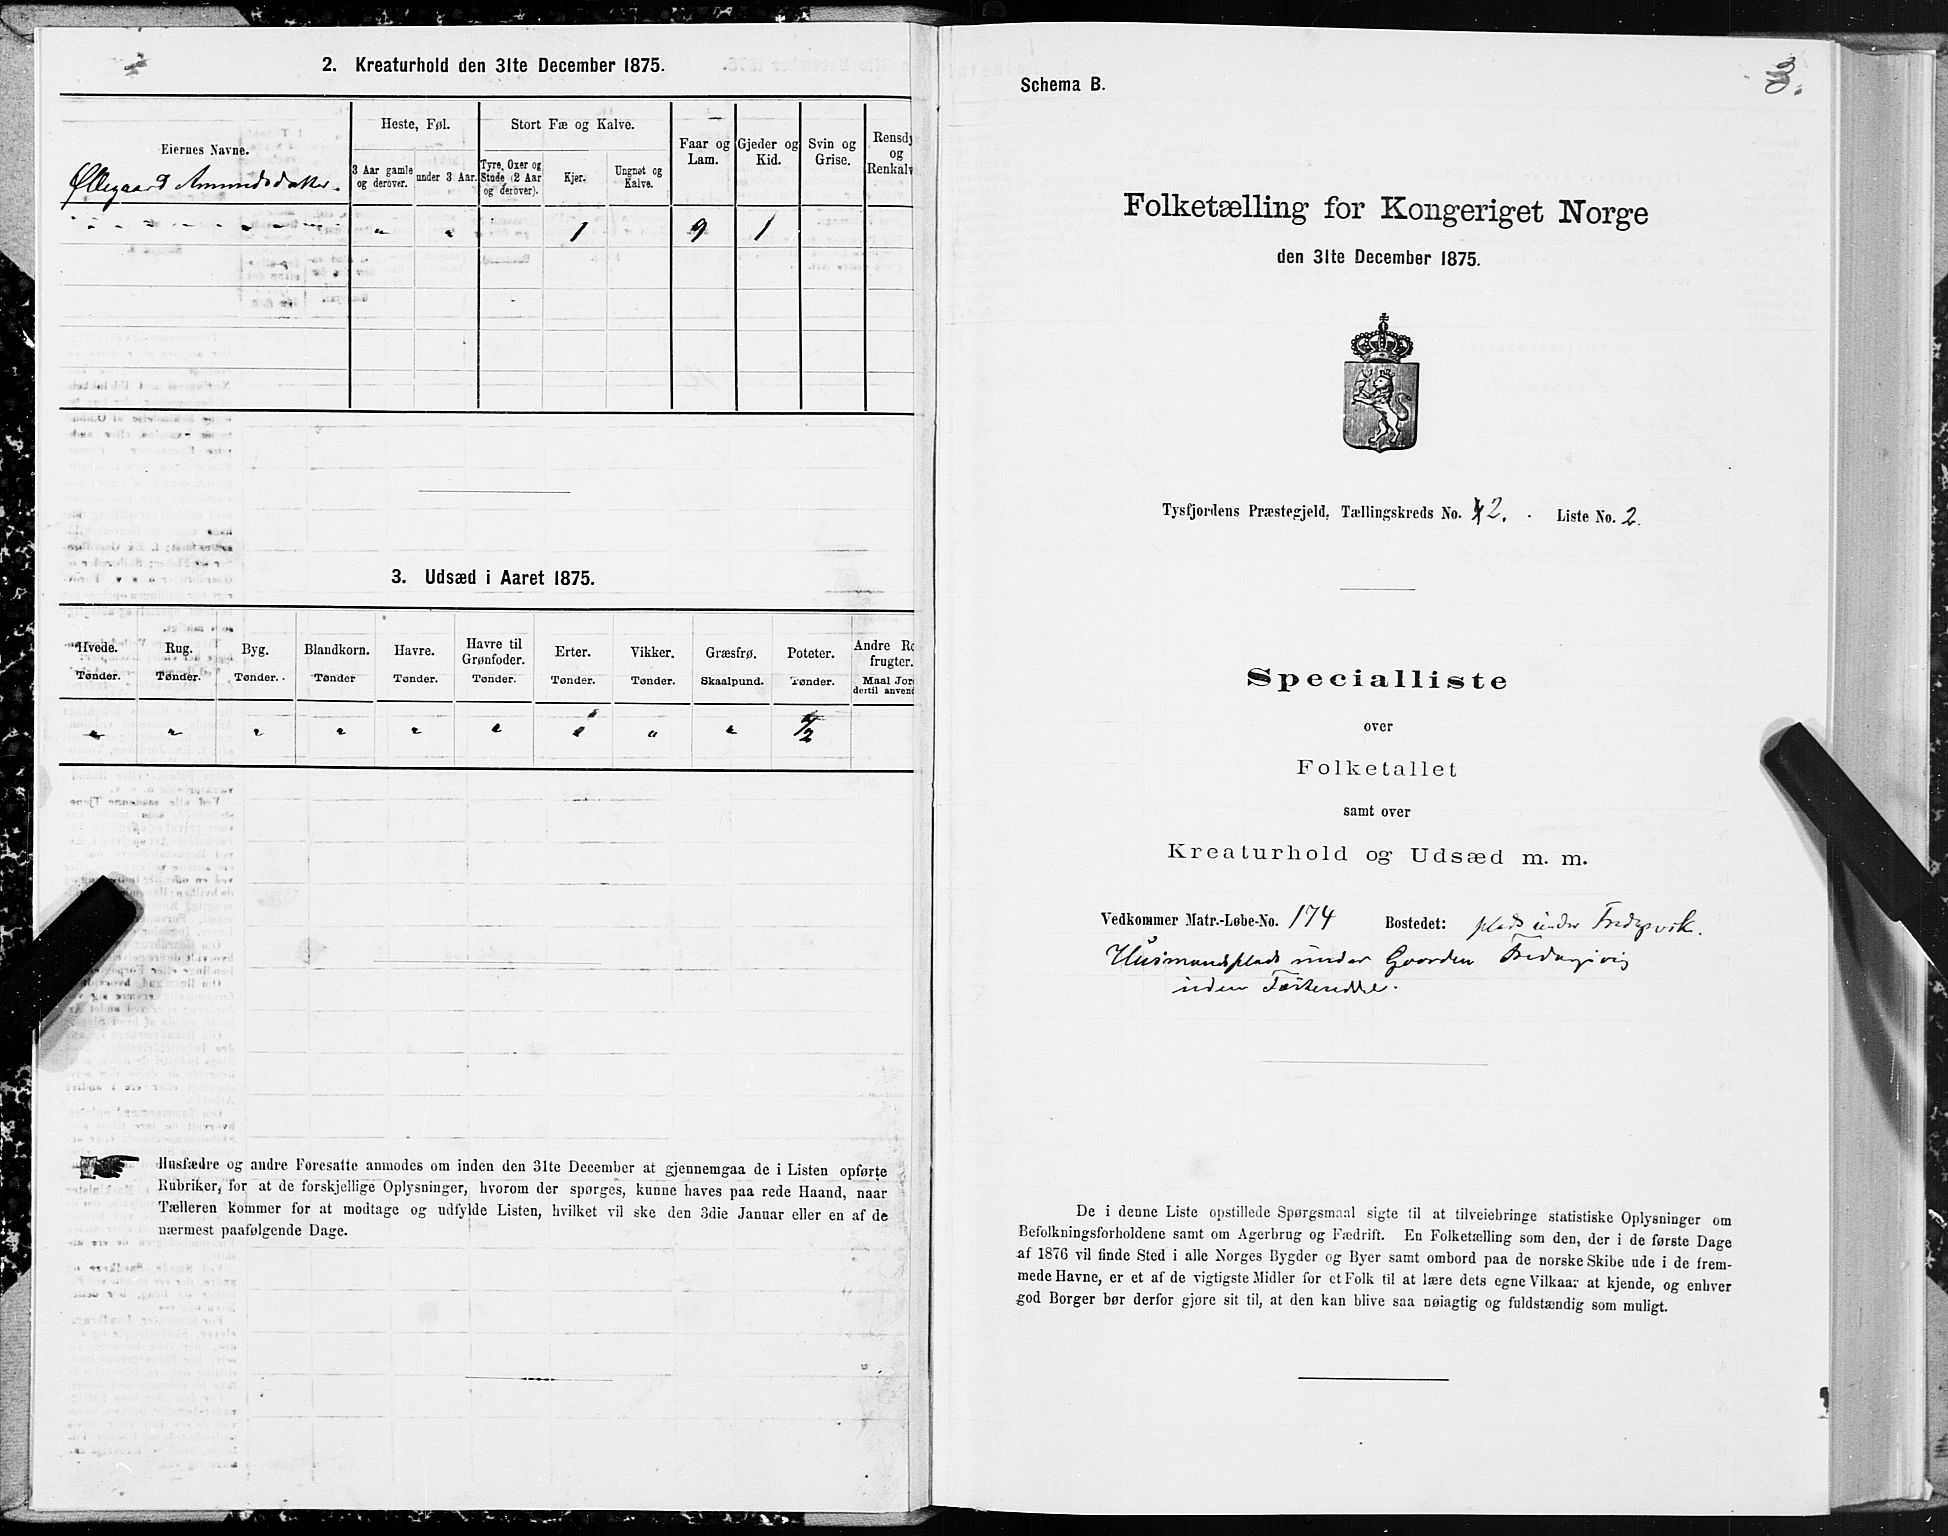 2. Kreaturhold den 31te December 1875.
Eiernes Navne.
Heste, Føl.
Stort Fæ og Kalve.
Faar og Lam.
Gjeder og Kid.
Svin og Grise.
Rensdy
og
Renkalv
3 Aar gamle og derover.
under 3 Aar.
Tyre, Oxer og Stude (2 Aar og derover).
Kjør.
Ungnøt og Kalve.
Øllegaard Amundsdatter.
" " 1 9 1
3. Udsæd i Aaret 1875.
Hvede. Rug. Byg. Blandkorn. Havre. Havre til Grønfoder. Erter. Vikker. Græsfrø. Poteter. Andre Ro
frugter.
Tønder. Tønder. Tønder. Tønder Tønder. Tønder. Tønder. Tønder. Skaalpund. Tønder. Maal Jor
dertil anven
" " " " " " " " " 1/2
Husfædre og andre Foresatte anmodes om inden den 31te December at gjennemgaa de i Listen opførte
Rubriker, for at de forskjellige Oplysninger, hvorom der spørges, kunne haves paa rede Haand, naar
Tælleren kommer for at modtage og udfylde Listen, hvilket vil ske den 3die Januar eller en af de
nærmest paafølgende Dage.
Schema B.
3.
Folketælling for Kongeriget Norge
den 31te December 1875.
Tysfjordens Præstegjeld, Tællingskreds No. 2. Liste No. 2.
Specialliste
over
Folketallet
samt over
Kreaturhold og Udsæd m. m.
Vedkommer Matr.-Løbe-No. 174 Bostedet: plads under
Husmandsplads under Gaarden
uden
De i denne Liste opstillede Spørgsmaal sigte til at tilveiebringe statistiske Oplysninger om
Befolkningsforholdene samt om Agerbrug og Fædrift. En Folketælling som den, der i de første Dage
af 1876 vil finde Sted i alle Norges Bygder og Byer samt ombord paa de norske Skibe ude i de frem-
mede Havne, er et af de vigtigste Midler for et Folk til at lære dets egne Vilkaar at kjende, og enhver
god Borger bør derfor gjøre sit til, at den kan blive saa nøiagtig og fuldstændig som muligt.